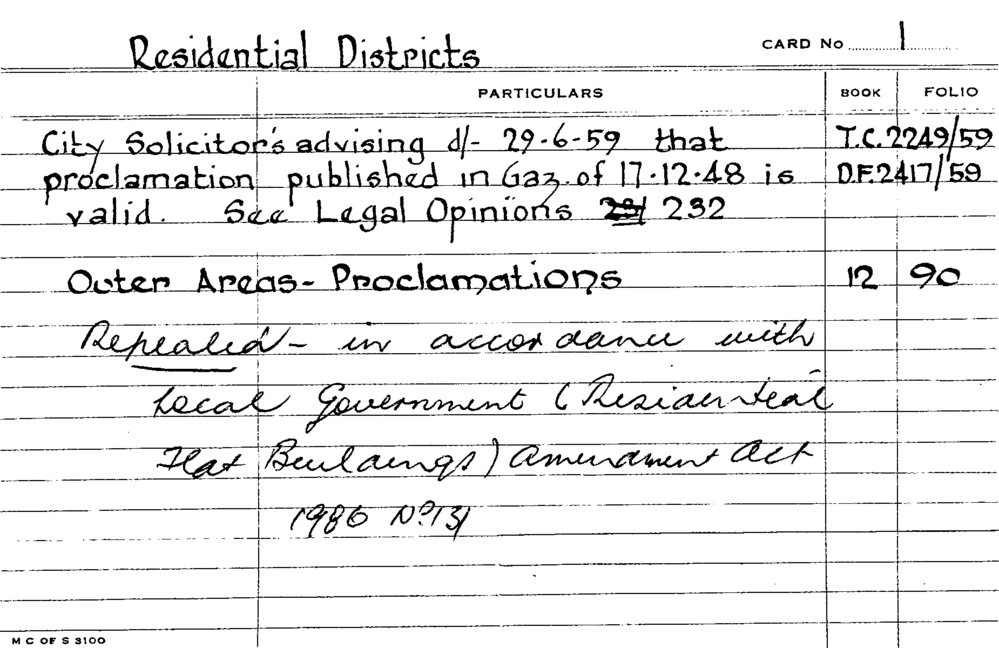 Residential Districts CARD No 1
PARTICULARS BOOK FOLIO
City Solicitor's advising d/- 29-6-59 that T.C.2249/59
proclamation published in Gaz. of 17.12.48 is D.F.2417/59
valid. See Legal Opinions 232
Outer Areas - Proclamations 12 90
Repealed - in accordance with
Local Government (Residential
Flat Buildings) Amendment Act
1986 Nº131
M C OF S 3100